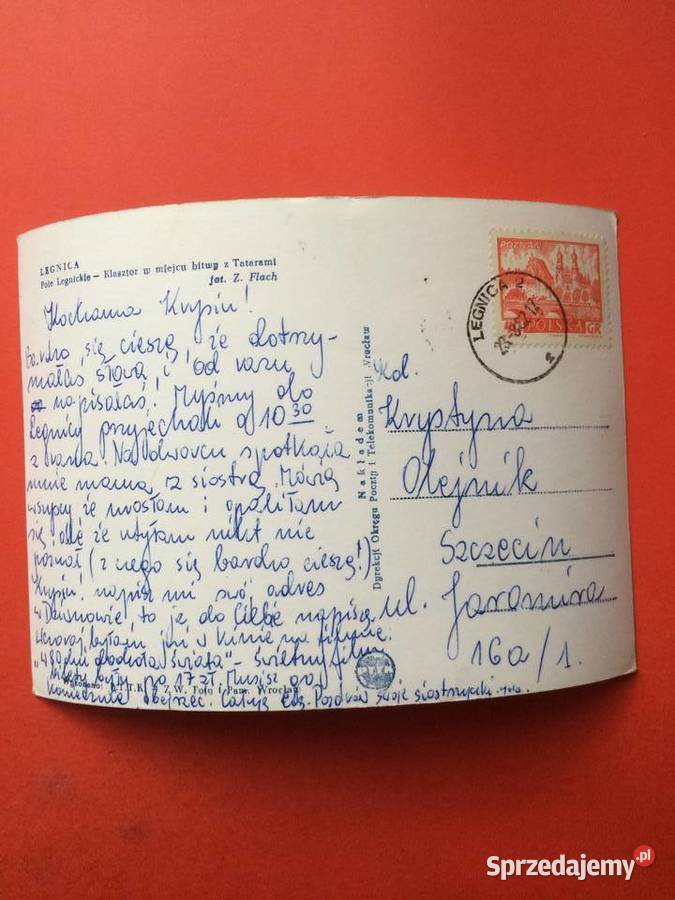 LEGNICA
Pole Legnickie — Klasztor w miejcu bitwy z Tatarami
fot. Z. Flach
Kochana Krysiu!
Bardzo się cieszę, że dotrzy-
małaś słowa i od razu
napisałaś! Myśmy do
Legnicy przyjechali o 10 30
z rana. Na dworcu spotkała
mnie mama z siostrą. Mówią
wszyscy że urosłam i opaliłam
się, ale że utyłam nikt nie
poznał (z czego się bardzo cieszę!)
Krysiu! napisz mi swój adres
w to je do Ciebie napiszę
byłam już w kinie na filmie
"80 dni dookoła świata" - świetny film
bilety były po 17 zł. Musisz go
koniecznie obejrzeć. Całuję Cię. Pozdrów swoje siostrzyczki.
Wykonano: Z.W. Foto i Pam. Wrocław
Nakładem
Dyrekcji Okręgu Poczty i Telekomunikacji Wrocław
POZNAŃ
POLSKA
GR
LEGNICA 2
Kol.
Krystyna
Olejnik
Szczecin
ul. Jaromira
16a/1.
Sprzedajemy.pl